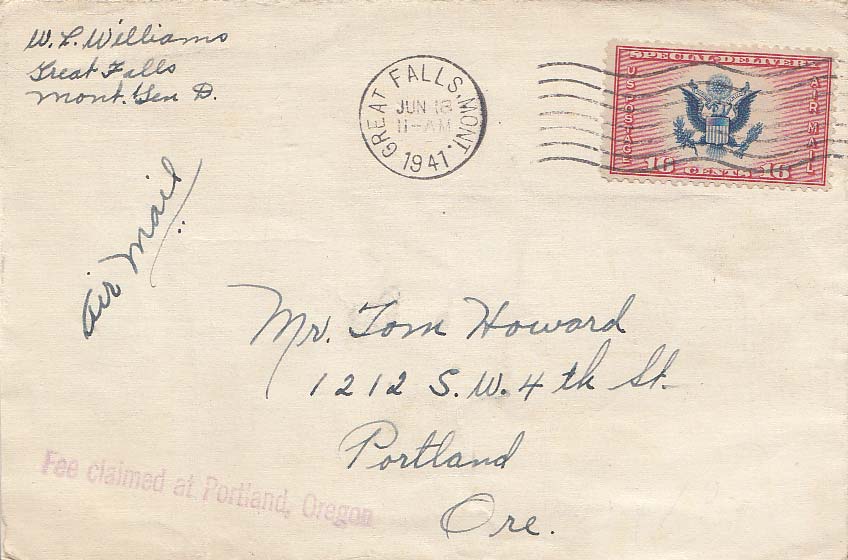 W. L. Williams
Great Falls
Mont. Gen D.
GREAT FALLS, MONT.
JUN 18
11-AM
1941.
SPECIAL DELIVERY
U.S. POSTAGE
AIR MAIL
16 CENTS 16
Air Mail
Mr. Tom Howard
1212 S.W. 4 th St.
Portland
Ore.
Fee claimed at Portland, Oregon